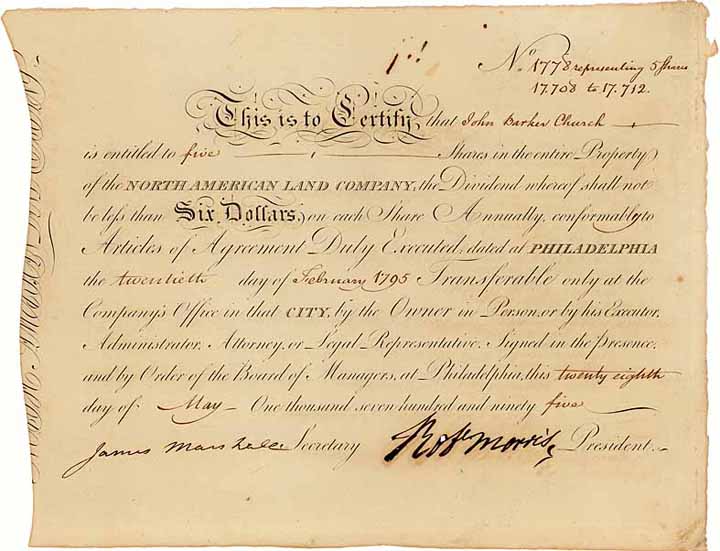 No. 1778 representing 5 Shares
17.708 to 17.712.
This is to Certify, that John Barker Church
is entitled to five Shares in the entire Property
of the NORTH AMERICAN LAND COMPANY, the Dividend whereof shall not
be less than Six Dollars, on each Share Annually, conformably to
Articles of Agreement Duly Executed, dated at PHILADELPHIA
the twentieth day of February 1795 Transferable only at the
Company's Office in that CITY, by the Owner in Person, or by his Executor,
Administrator, Attorney, or Legal Representative. Signed in the presence,
and by Order of the Board of Managers, at Philadelphia, this twenty eighth
day of May One thousand seven hundred and ninety five
James Marshall Secretary Robt Morris, President.